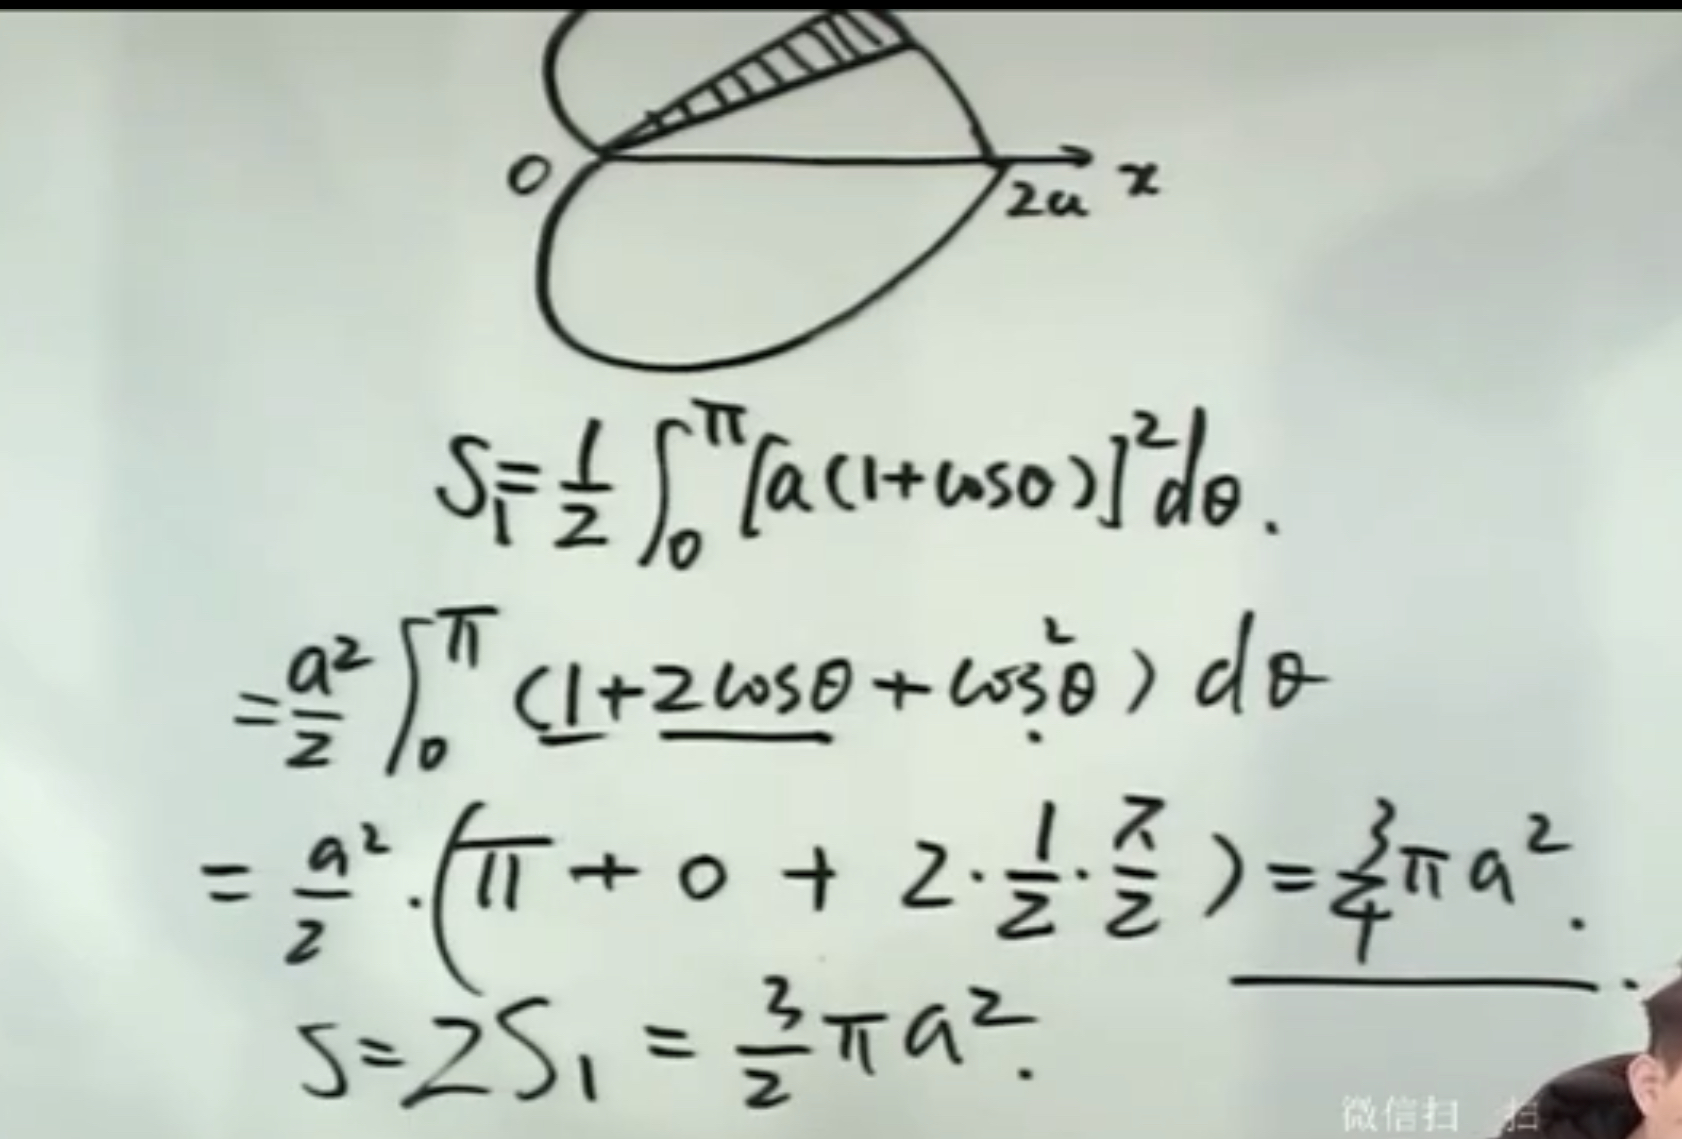 O 2a x
S₁=1/2 ∫₀^π [a(1+cosθ)]²dθ.
=a²/2 ∫₀^π (1+2cosθ+cos²θ) dθ
= a²/2 · (π + 0 + 2·1/2·π/2) = 3/4 πa².
S=2S₁ = 3/2 πa².
微信扫一扫